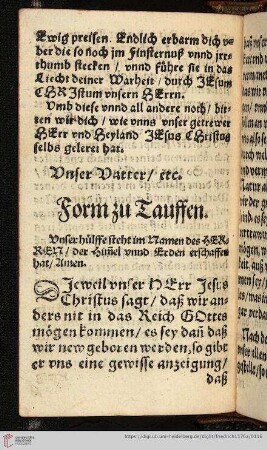 Ewig preisen. Endlich erbarm dich v⸗
ber die so noch im Finsternuß vnnd jrr⸗
thumb stecken / vnnd führe sie in das
Liecht deiner Warheit / durch JEsum
CHRIstum vnsern HErrn.
Vmb diese vnnd all andere noth / bit⸗
ten wir dich / wie vnns vnser getrewer
HErr vnd Heyland JEsus CHristus
selbs geleret hat.
Vnser Vatter / etc.
Form zu Tauffen.
Vnser hülffe steht im Namen des HER⸗
REN / der Him̃el vnnd Erden erschaffen
hat / Amen.
DJeweil vnser HErr Jesus
Christus sagt / daß wir an⸗
ders nit in das Reich GOttes
mögen kommen / es sey dañ daß
wir new geboren werden, so gibt
er vns eine gewisse anzeigung /
daß